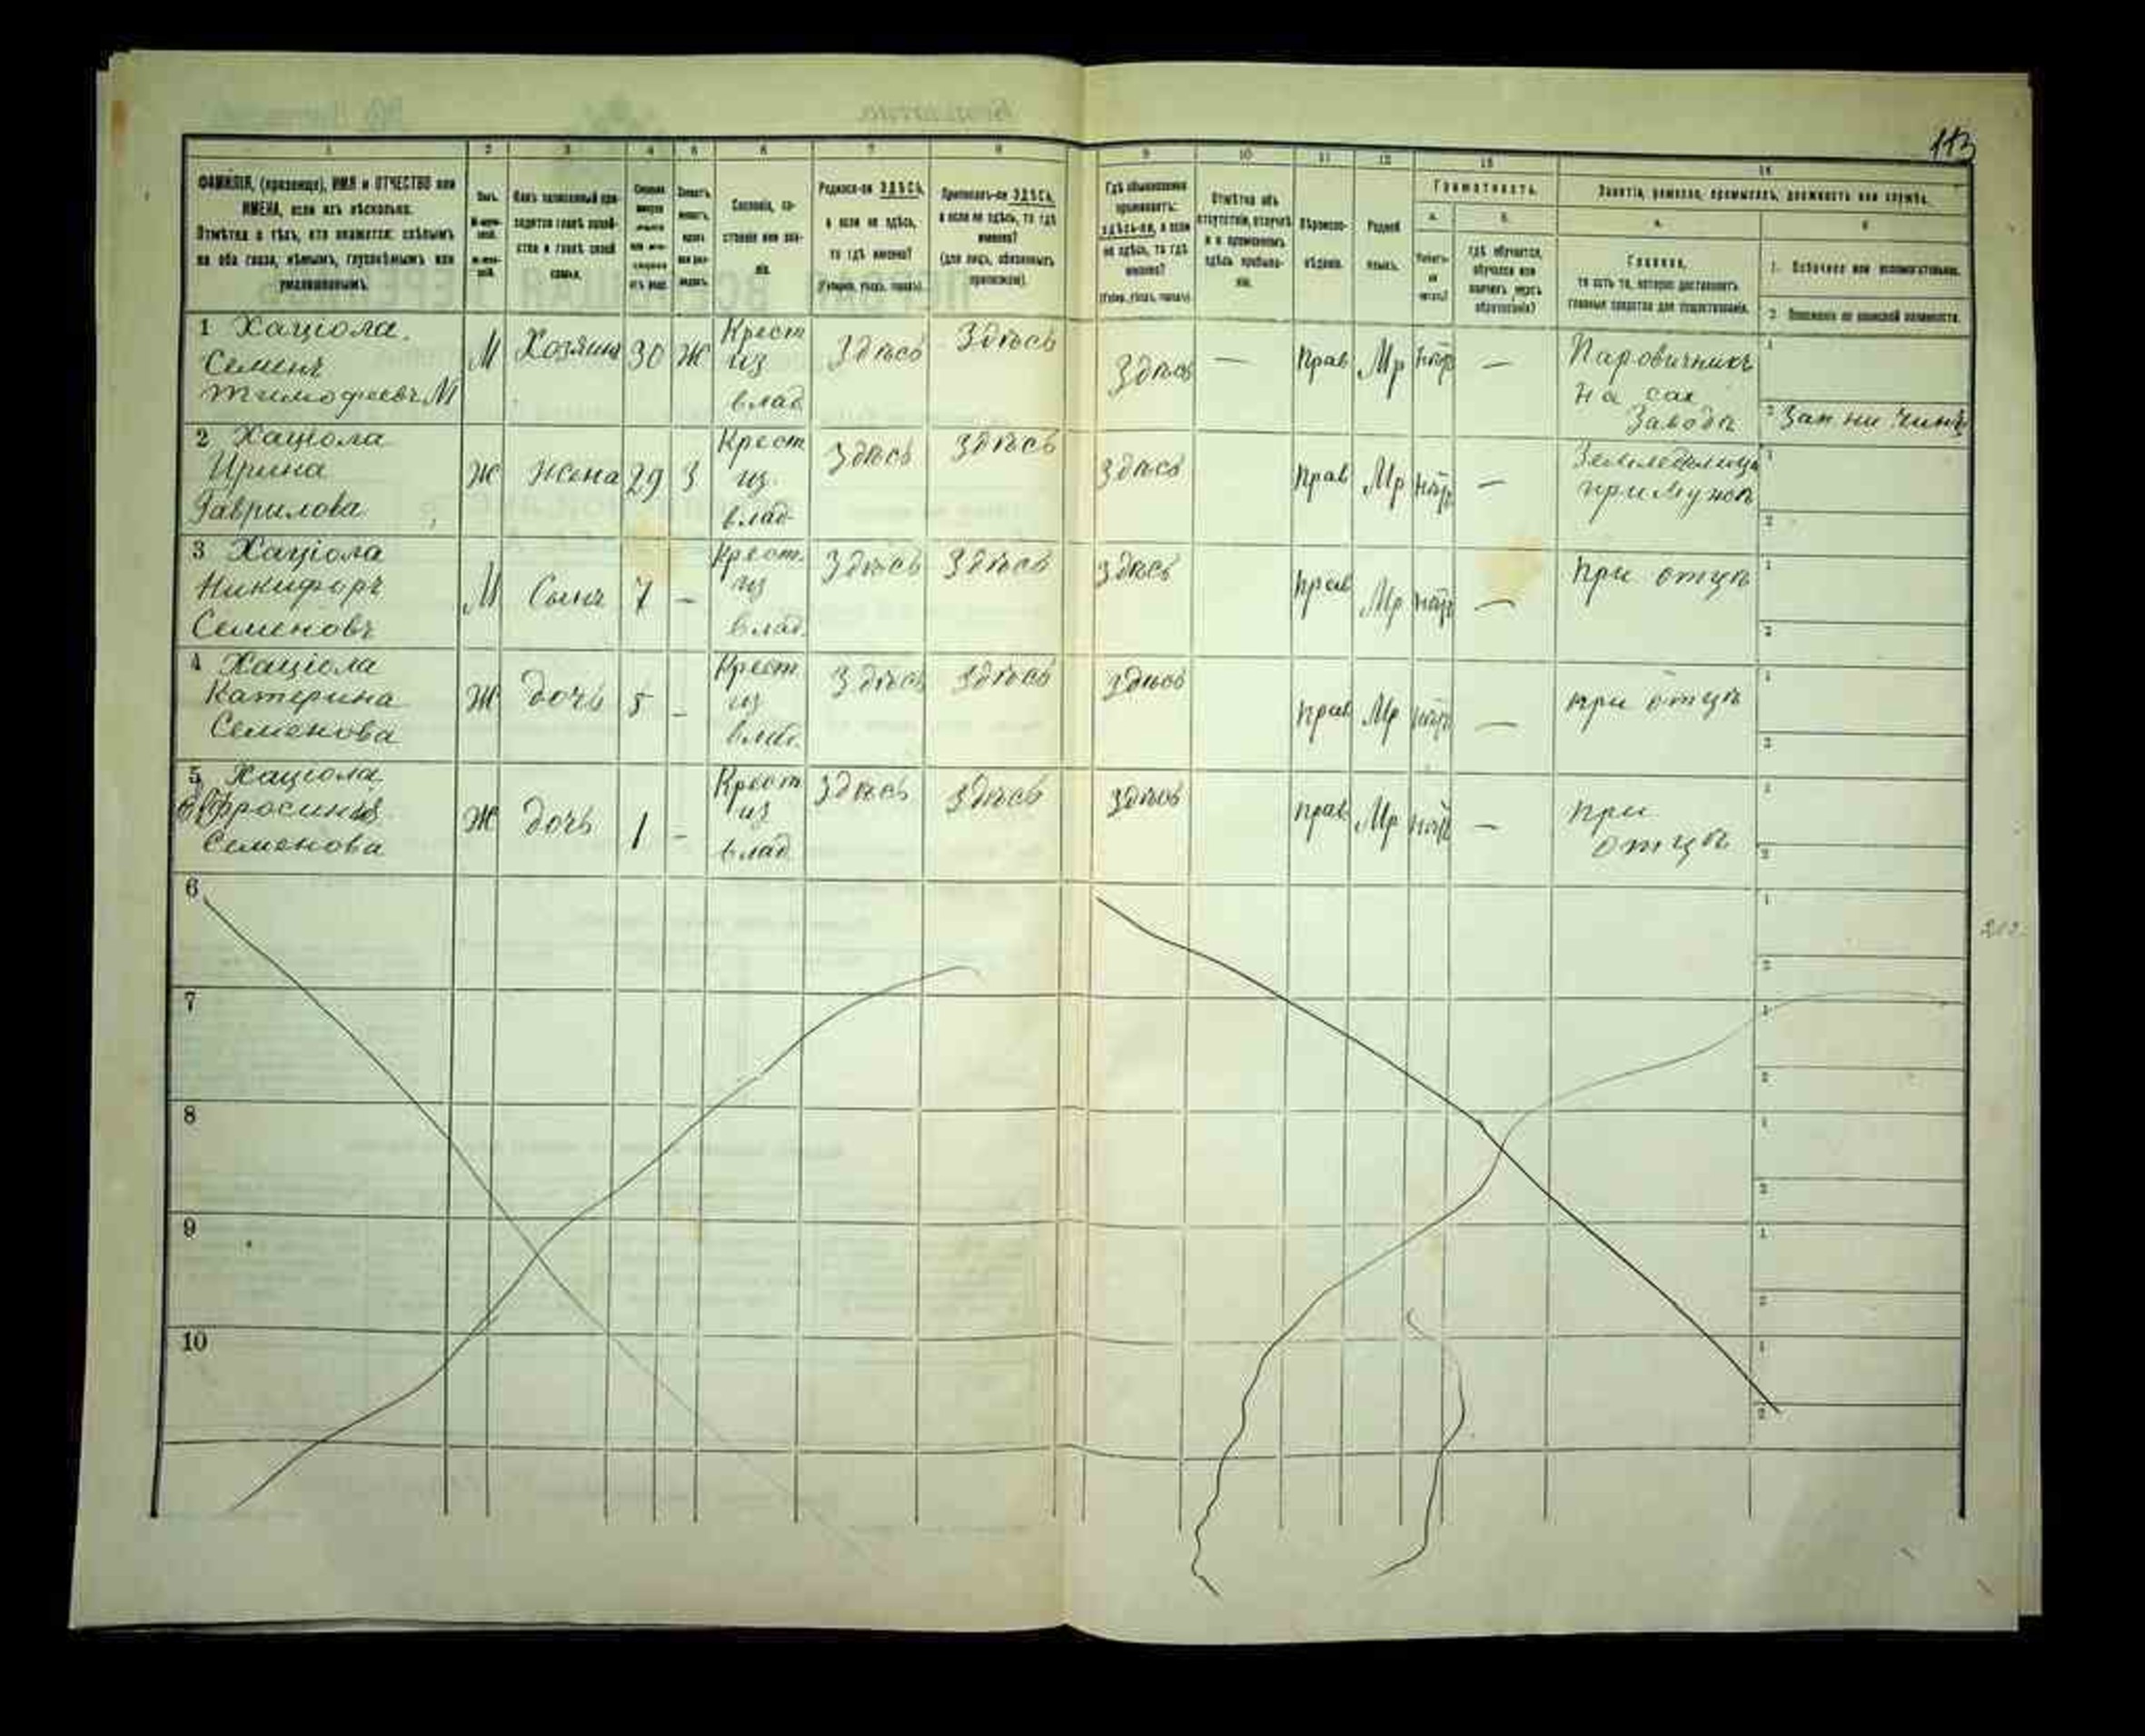 113
1 2 3 4 5 6 7 8 9 10 11 12 13 14
ФАМИЛІЯ, (прозвище), ИМЯ и ОТЧЕСТВО или
ИМЕНА, если ихъ нѣсколько.
Отмѣтка о тѣхъ, кто окажется: слѣпымъ
на оба глаза, нѣмымъ, глухонѣмымъ или
умалишеннымъ.
Полъ.
Какъ записанный при-
ходится главѣ хозяй-
ства и главѣ своей
семьи.
Сословіе, со-
стояніе или зва-
ніе.
Родился-ли ЗДѢСЬ,
а если не здѣсь,
то гдѣ именно?
(Губернія, уѣздъ, городъ).
Приписанъ-ли ЗДѢСЬ,
а если не здѣсь, то гдѣ
именно?
(для лицъ, обязанныхъ
припискою).
Гдѣ обыкновенно
проживаетъ:
здѣсь-ли, а если
не здѣсь, то гдѣ
именно?
(Губерн., уѣздъ, городъ).
Отмѣтка объ
отсутствіи, отлучкѣ
и о временномъ
здѣсь пребыва-
ніи.
Вѣроиспо-
вѣданіе.
Родной
языкъ.
Грамотность.
а. б.
Умѣетъ-
ли
читать?
гдѣ обучается,
обучался или
кончилъ курсъ
образованія?
Занятіе, ремесло, промыселъ, должность или служба.
а. б.
Главное,
то есть то, которое доставляетъ
главныя средства для существованія.
1. Побочное или вспомогательное.
2. Положеніе по воинской повинности.
1 Хаціола
Семенъ
Тимофеевъ М
М Хозяинъ 30 Ж
Крест
из
влад
Здѣсь Здѣсь Здѣсь — Прав Мр нѣтъ —
Паровичникъ
на сах
Заводѣ
1
2 Зап ни Чинъ
2 Хаціола
Ирина
Гаврилова
Ж жена 29 З
Крест
из
влад
Здѣсь Здѣсь Здѣсь Прав Мр нѣтъ —
при мужѣ
1
2
3 Хаціола
Никифоръ
Семеновъ
М Сынъ 7 —
Крест.
из
влад.
Здѣсь Здѣсь Здѣсь Прав Мр нѣтъ —
При отцѣ
1
2
4 Хаціола
Катерина
Семенова
Ж дочь 5 —
Крест.
из
влад.
Здѣсь Здѣсь Здѣсь Прав Мр нѣтъ —
при отцѣ
1
2
5 Хаціола
Ефросинья
Семенова
Ж дочь 1 —
Крест
из
влад
Здѣсь Здѣсь Здѣсь Прав Мр нѣтъ —
при
отцѣ
1
2
6
1
2
7
1
2
8
1
2
9
1
2
10
1
2